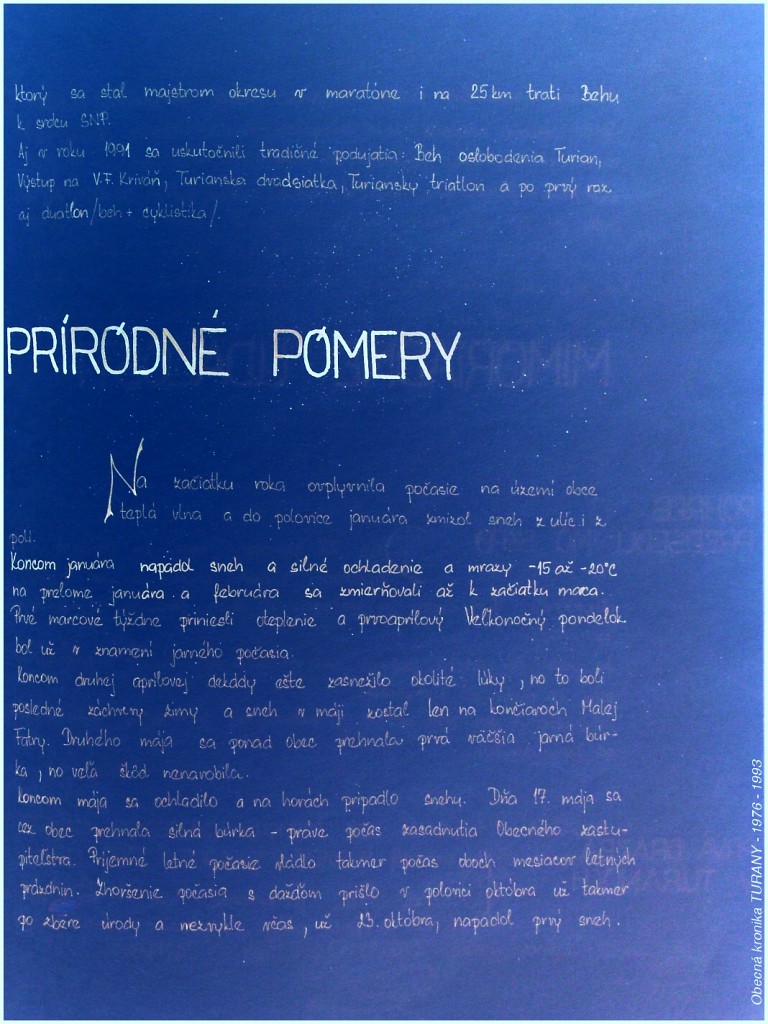 ktorý sa stal majstrom okresu v maratóne i na 25 km trati Behu
k srdcu SNP.
Aj v roku 1991 sa uskutočnili tradičné podujatia: Beh oslobodenia Turian,
Výstup na V.F. Kriváň, Turianska dvadsiatka, Turiansky triatlon a po prvý raz
aj duatlon /beh + cyklistika/.
PRÍRODNÉ POMERY
Na začiatku roka ovplyvnila počasie na území obce
teplá vlna a do polovice januára zmizol sneh z ulíc i z
polí.
Koncom januára napadol sneh a silné ochladenie a mrazy -15 až -20°C
na prelome januára a februára sa zmierňovali až k začiatku marca.
Prvé marcové týždne priniesli oteplenie a prvoaprílový Veľkonočný pondelok
bol už v znamení jarného počasia.
Koncom druhej aprílovej dekády ešte zasnežilo okolité lúky, no to boli
posledné záchvevy zimy a sneh v máji zostal len na končiaroch Malej
Fatry. Druhého mája sa ponad obec prehnala prvá väčšia jarná búr-
ka, no veľa škôd nenarobila.
Koncom mája sa ochladilo a na horách pripadlo snehu. Dňa 17. mája sa
cez obec prehnala silná búrka - práve počas zasadnutia Obecného zastu-
piteľstva. Príjemné letné počasie vládlo takmer počas oboch mesiacov letných
prázdnin. Zhoršenie počasia s dažďom prišlo v polovici októbra už takmer
po zbere úrody a nezvykle včas, už 23. októbra, napadol prvý sneh.
Obecná kronika TURANY - 1976 - 1993